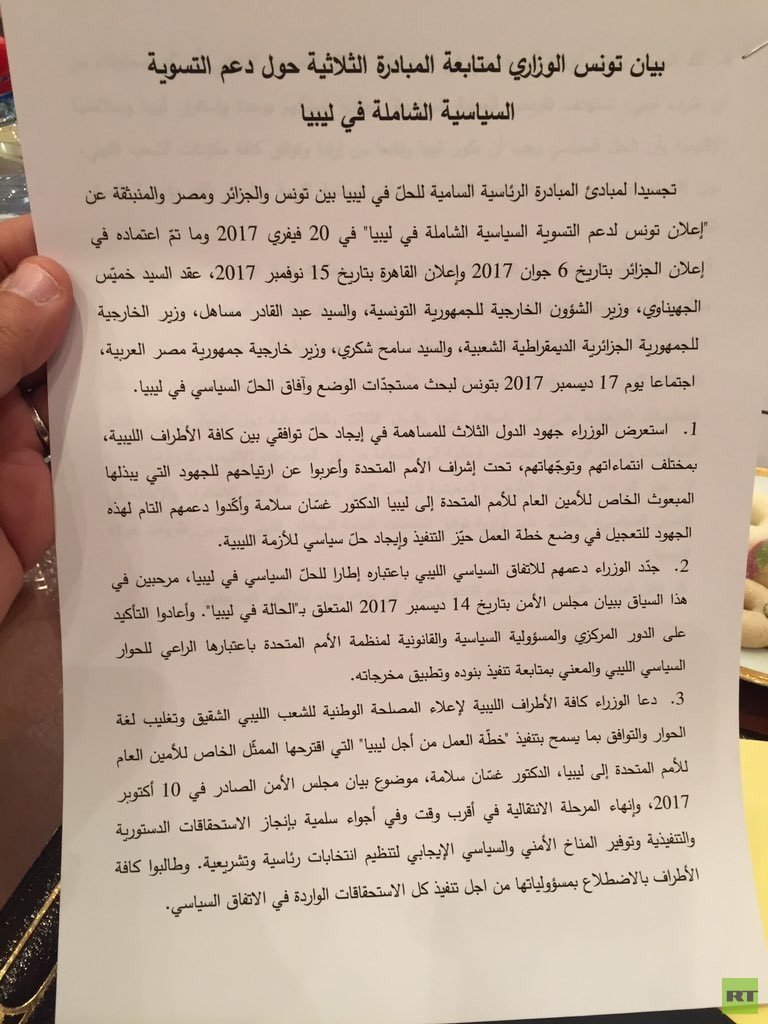 بيان تونس الوزاري لمتابعة المبادرة الثلاثية حول دعم التسوية
السياسية الشاملة في ليبيا
تجسيدا لمبادئ المبادرة الرئاسية السامية للحلّ في ليبيا بين تونس والجزائر ومصر والمنبثقة عن
"إعلان تونس لدعم التسوية السياسية الشاملة في ليبيا" في 20 فيفري 2017 وما تمّ اعتماده في
إعلان الجزائر بتاريخ 6 جوان 2017 وإعلان القاهرة بتاريخ 15 نوفمبر 2017، عقد السيد خميّس
الجهيناوي، وزير الشؤون الخارجية للجمهورية التونسية، والسيد عبد القادر مساهل، وزير الخارجية
للجمهورية الجزائرية الديمقراطية الشعبية، والسيد سامح شكري، وزير خارجية جمهورية مصر العربية،
اجتماعا يوم 17 ديسمبر 2017 بتونس لبحث مستجدّات الوضع وآفاق الحلّ السياسي في ليبيا.
1. استعرض الوزراء جهود الدول الثلاث للمساهمة في إيجاد حلّ توافقي بين كافة الأطراف الليبية،
بمختلف انتماءاتهم وتوجّهاتهم، تحت إشراف الأمم المتحدة وأعربوا عن ارتياحهم للجهود التي يبذلها
المبعوث الخاص للأمين العام للأمم المتحدة إلى ليبيا الدكتور غسّان سلامة وأكّدوا دعمهم التام لهذه
الجهود للتعجيل في وضع خطة العمل حيّز التنفيذ وإيجاد حلّ سياسي للأزمة الليبية.
2. جدّد الوزراء دعمهم للاتفاق السياسي الليبي باعتباره إطارا للحلّ السياسي في ليبيا، مرحبين في
هذا السياق ببيان مجلس الأمن بتاريخ 14 ديسمبر 2017 المتعلق بـ"الحالة في ليبيا". وأعادوا التأكيد
على الدور المركزي والمسؤولية السياسية والقانونية لمنظمة الأمم المتحدة باعتبارها الراعي للحوار
السياسي الليبي والمعني بمتابعة تنفيذ بنوده وتطبيق مخرجاته.
3. دعا الوزراء كافة الأطراف الليبية لإعلاء المصلحة الوطنية للشعب الليبي الشقيق وتغليب لغة
الحوار والتوافق بما يسمح بتنفيذ "خطّة العمل من أجل ليبيا" التي اقترحها الممثّل الخاص للأمين العام
للأمم المتحدة إلى ليبيا، الدكتور غسّان سلامة، موضوع بيان مجلس الأمن الصادر في 10 أكتوبر
2017، وإنهاء المرحلة الانتقالية في أقرب وقت وفي أجواء سلمية بإنجاز الاستحقاقات الدستورية
والتنفيذية وتوفير المناخ الأمني والسياسي الإيجابي لتنظيم انتخابات رئاسية وتشريعية. وطالبوا كافة
الأطراف بالاضطلاع بمسؤولياتها من اجل تنفيذ كل الاستحقاقات الواردة في الاتفاق السياسي.
RT